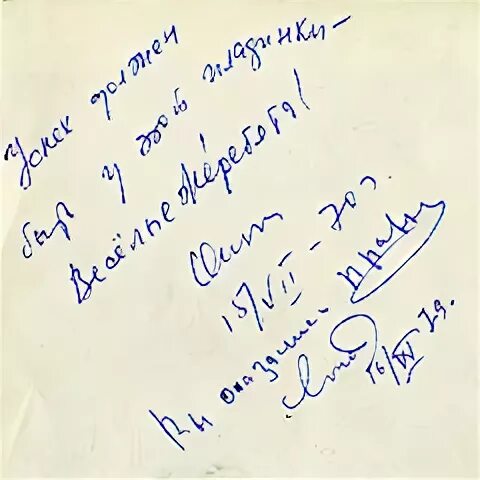 Успех должен
быть у этой пластинки –
Весёлые жеребята!
15/VII – 70 г.
Вы оказались правы